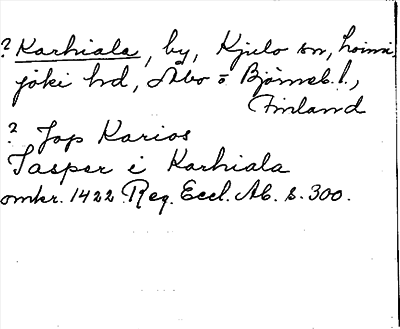 ? Karhiala, by, Kjulo sn, Loimi-
joki hd, Åbo o Björneb. l.,
Finland
? Jop Karios
Jasper i Karhiala
omkr. 1422 Reg. Eccl. Ab. s. 300.